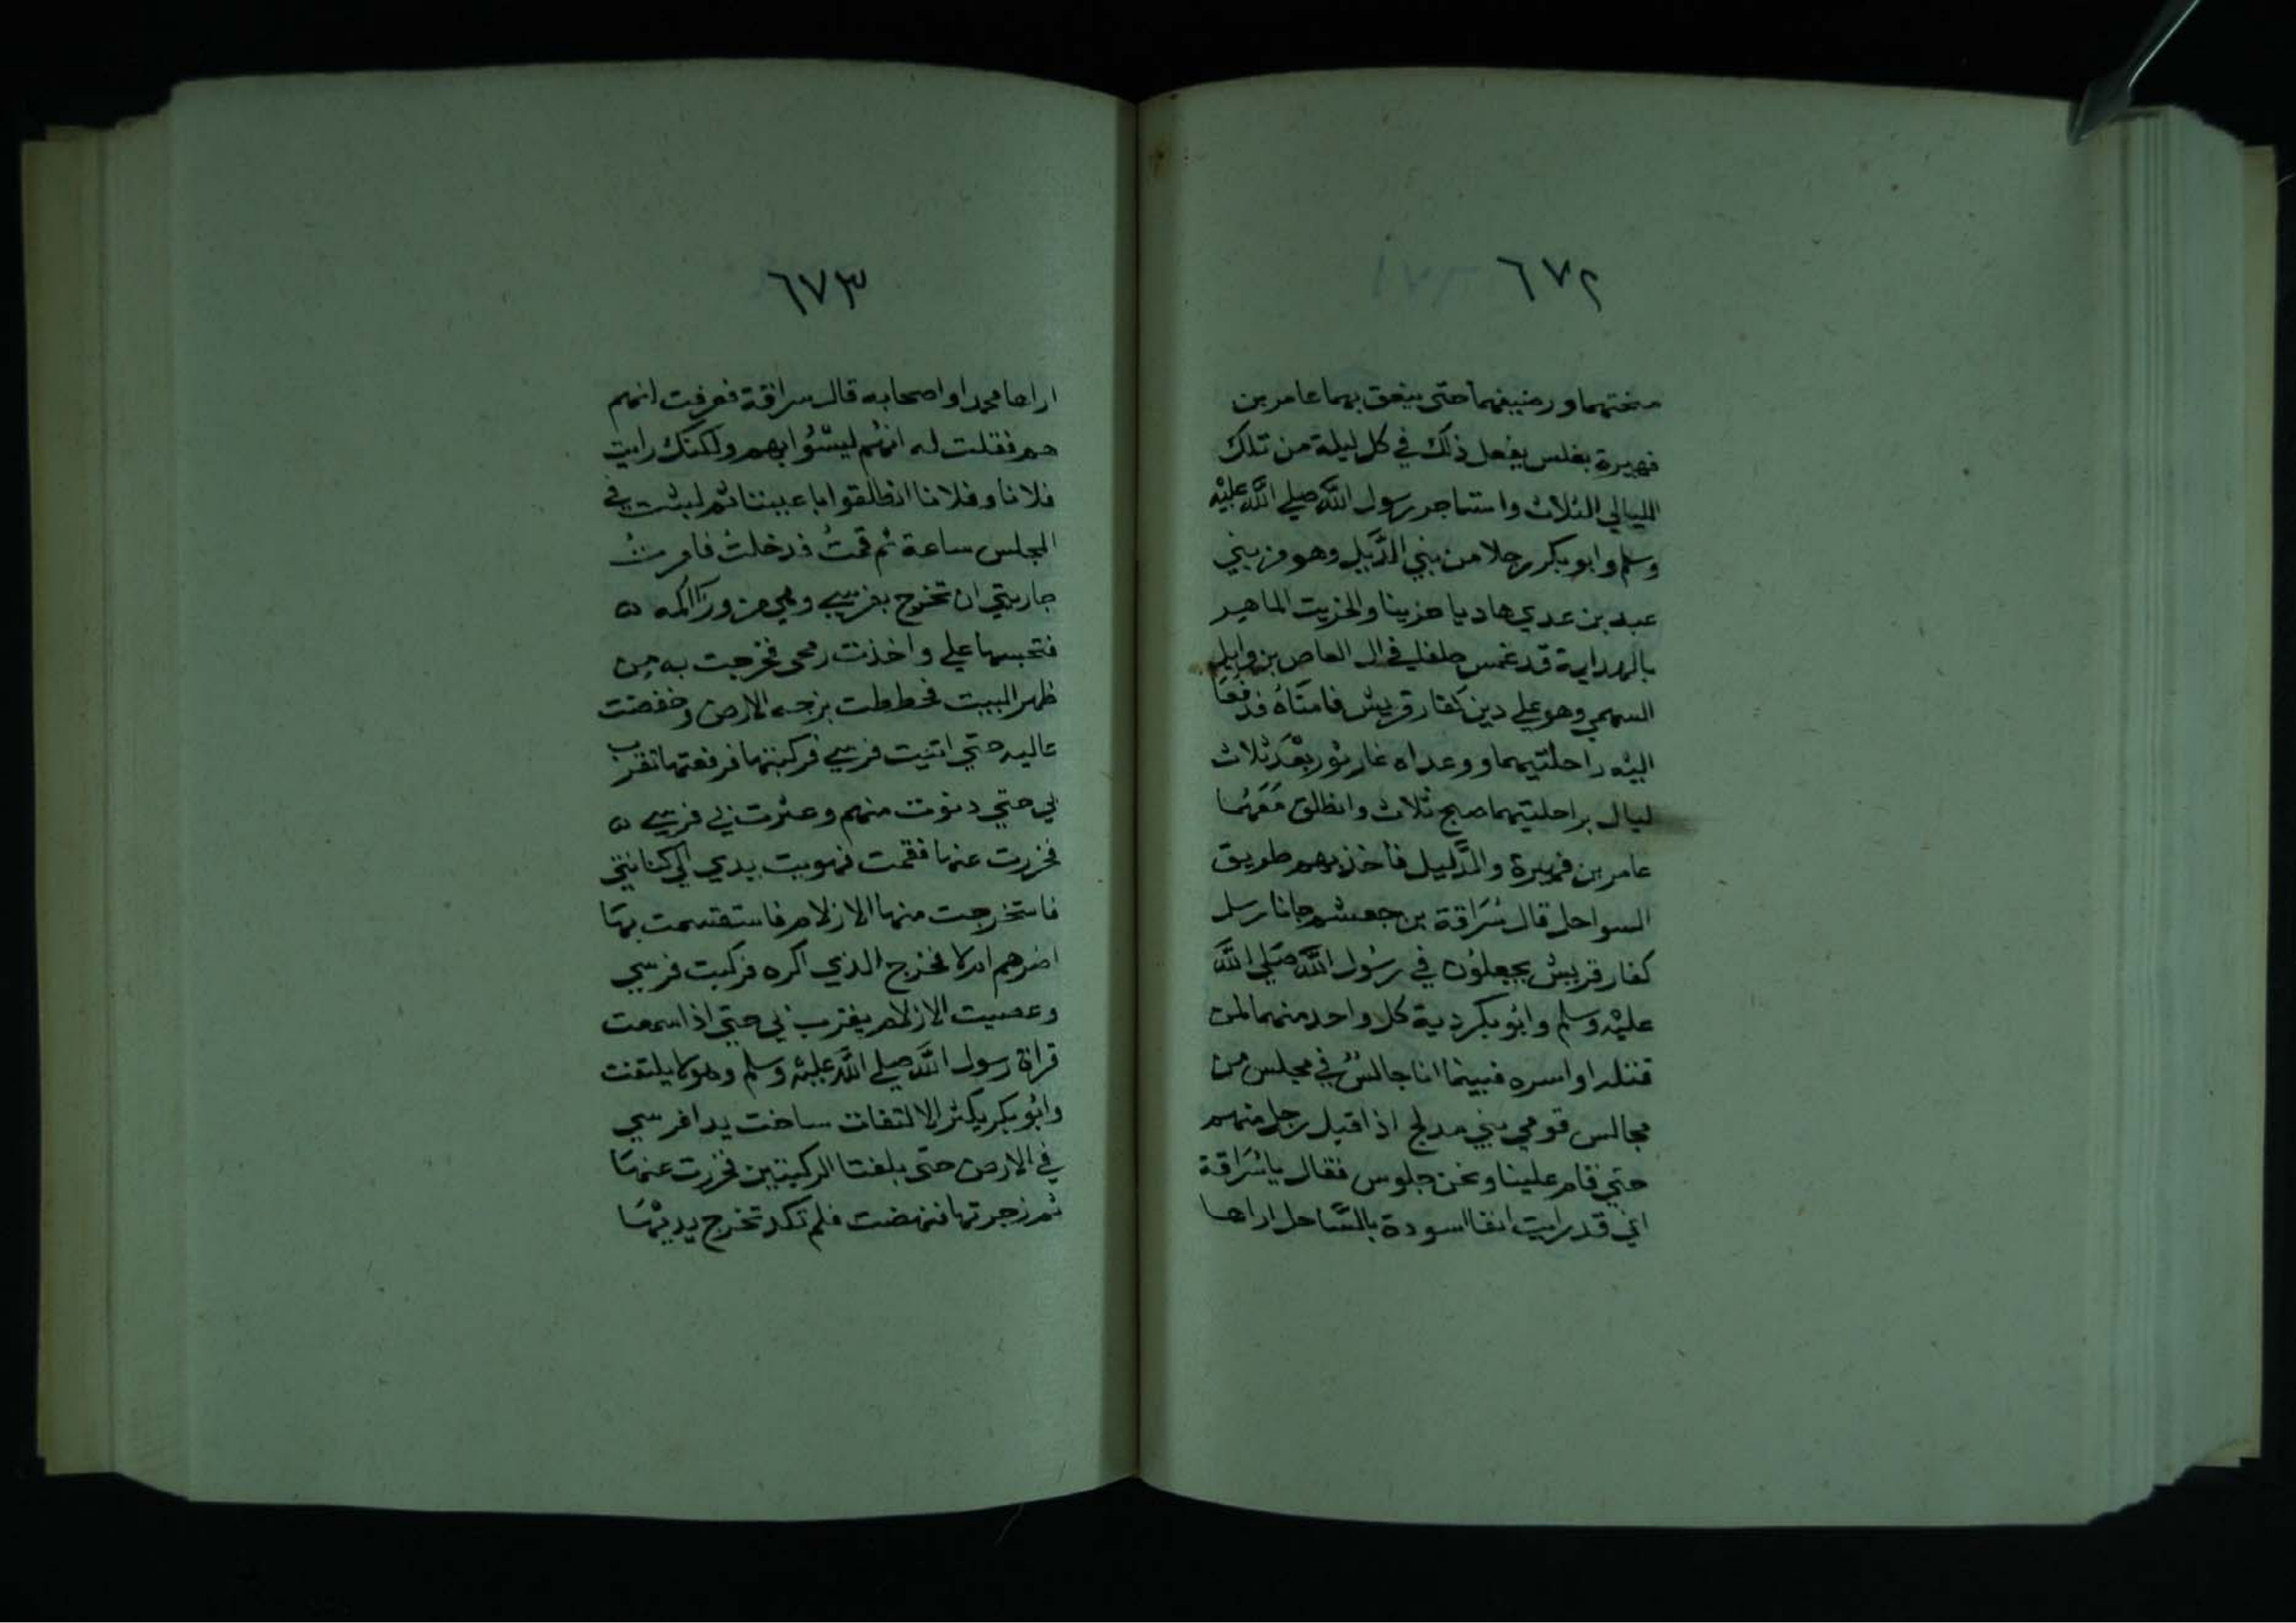 ٦٧٢
منحتهما ورضيفهما حتى ينعق بهما عامر بن
فهيرة بغلس يفعل ذلك في كل ليلة من تلك
الليالي الثلاث واستاجر رسول الله صلي الله عليه
وسلم وابو بكر رجلا من بني الدّيل وهو من بني
عبد بن عدي هاديا خريتا والخريت الماهر
بالهداية قد غمس حلفا في ال العاص بن وايل
السهمي وهو علي دين كفار قريش فامناه فدفعا
اليه راحلتيهما وواعداه غار ثور بعد ثلاث
ليال براحلتيهما صبح ثلاث وانطلق معهما
عامر بن فهيرة والدليل فاخذ بهم طريق
السواحل قال سُرَاقة بن جعشم جانا رسل
كفار قريش يجعلون في رسُول الله صلي الله
عليه وسلم وابو بكر دية كل واحد منهما لمن
قتله او اسره فبينما انا جالسٌ في مجلس من
مجالس قومي بني مدلج اذ اقبل رجل منهم
حتي قام علينا ونحن جلوس فقال يا سُرَاقة
اني قد رايت انفا اسودة بالسّاحل اراها
٦٧٣
اراها محمدا واصحابه قال سراقة فعرفت انهم
هم فقلت له انهم ليسُوا بهم ولكنك رايت
فلانا وفلانا انطلقوا باعيننا ثم لبثت في
المجلس ساعة ثم قمتُ فدخلت فامرتُ
جاريتي ان تخرج بفرسي وهي من ورآ اكمه ه
فتحبسها علي واخذت رمحي فخرجت به من
ظهر البيت فخططت بزجه الارض وخفضت
عاليه حتي اتيت فرسي فركبتها فرفعتها تقرب
بي حتي دنوت منهم وعثرت بي فرسي ه
فخررت عنها فقمت فهويت يدي الي كنانتي
فاستخرجت منها الازلام فاستقسمت بها
اضرهم ام لا فخرج الذي اكره فركبت فرسي
وعصيت الازلام يقرب بي حتي اذا سمعت
قراة رسول الله صلي الله عليه وسلم وهو لا يلتفت
وابو بكر يكثر الالتفات ساخت يدا فرسي
في الارض حتى بلغتا الركبتين فخررت عنها
ثم زجرتها فنهضت فلم تكد تخرج يديْها